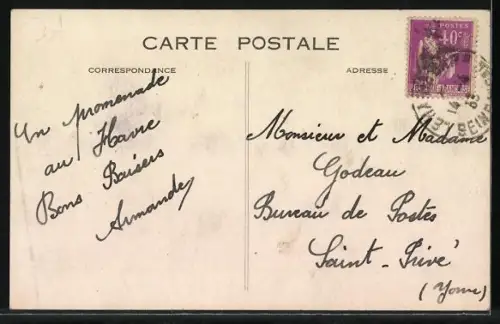 CARTE POSTALE
CORRESPONDANCE
ADRESSE
POSTES
40c
En promenade
au Havre
Bons Baisers
Armande
Monsieur et Madame
Godeau
Bureau de Postes
Saint-Privé
(Yonne)